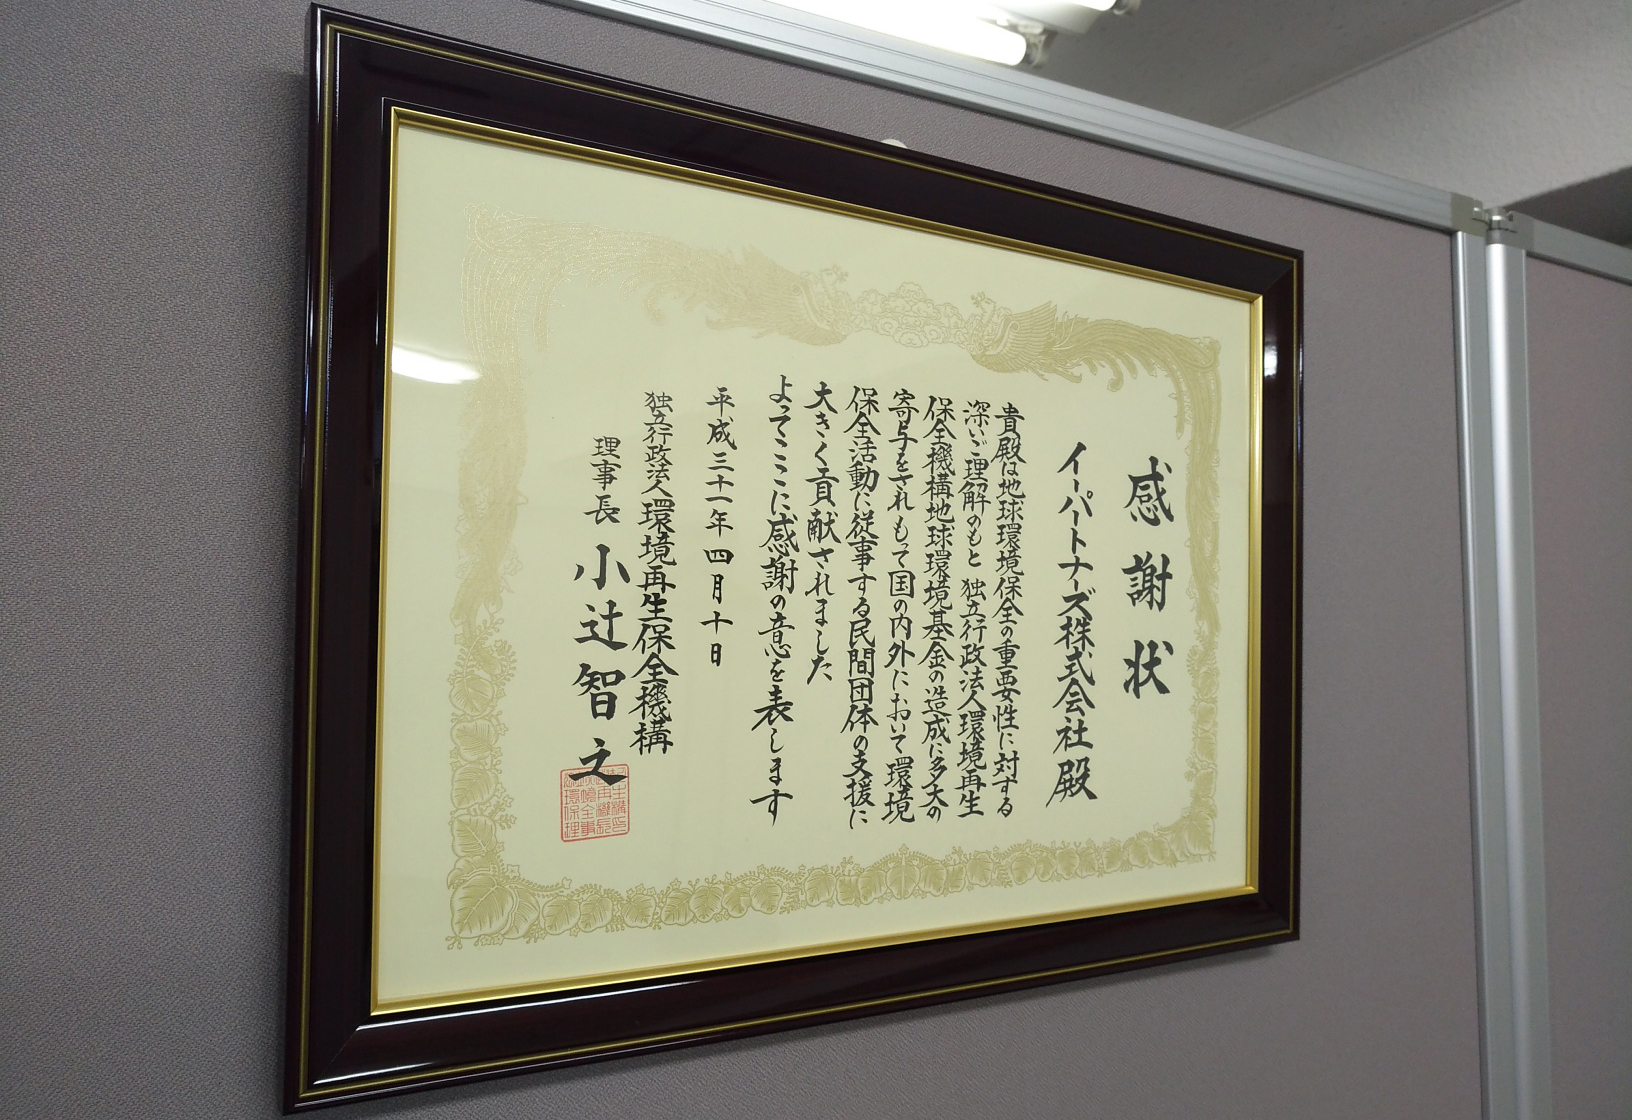 感謝状
イーパートナーズ株式会社殿
貴殿は地球環境保全の重要性に対する
深いご理解のもと 独立行政法人環境再生
保全機構地球環境基金の造成に多大の
寄与をされもって国の内外において環境
保全活動に従事する民間団体の支援に
大きく貢献されました
よってここに感謝の意を表します
平成三十一年四月十日
独立行政法人環境再生保全機構
理事長 小辻智之